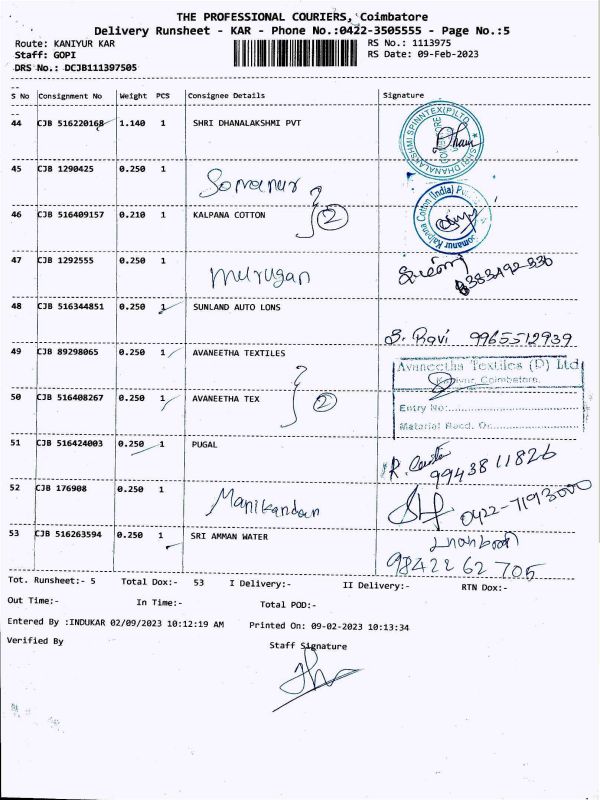 THE PROFESSIONAL COURIERS, Coimbatore
Delivery Runsheet - KAR - Phone No.:0422-3505555 - Page No.:5
Route: KANIYUR KAR RS No.: 1113975
Staff: GOPI RS Date: 09-Feb-2023
DRS No.: DCJB111397505
S No Consignment No Weight PCS Consignee Details Signature
44 CJB 516220168 1.140 1 SHRI DHANALAKSHMI PVT
SHRI DHANALAKSHMI SPINNTEX (P) LTD
COIMBATORE
45 CJB 1290425 0.250 1 Somanur
46 CJB 516409157 0.210 1 KALPANA COTTON 2
Kalpana Cotton (India) P
Somanur
47 CJB 1292555 0.250 1 Murugan
48 CJB 516344851 0.250 1 SUNLAND AUTO LONS
S. Ravi 9965512939
49 CJB 89298065 0.250 1 AVANEETHA TEXTILES
Avaneetha Textiles (P) Ltd
Kaniyur, Coimbatore.
50 CJB 516408267 0.250 1 AVANEETHA TEX 2
Entry No:
Material Recd. On:
51 CJB 516424003 0.250 1 PUGAL
9943811826
52 CJB 176908 0.250 1 Manikandan
0422-7193000
53 CJB 516263594 0.250 1 SRI AMMAN WATER
98422 62 705
Tot. Runsheet:- 5 Total Dox:- 53 I Delivery:- II Delivery:- RTN Dox:-
Out Time:- In Time:- Total POD:-
Entered By :INDUKAR 02/09/2023 10:12:19 AM Printed On: 09-02-2023 10:13:34
Verified By Staff Signature